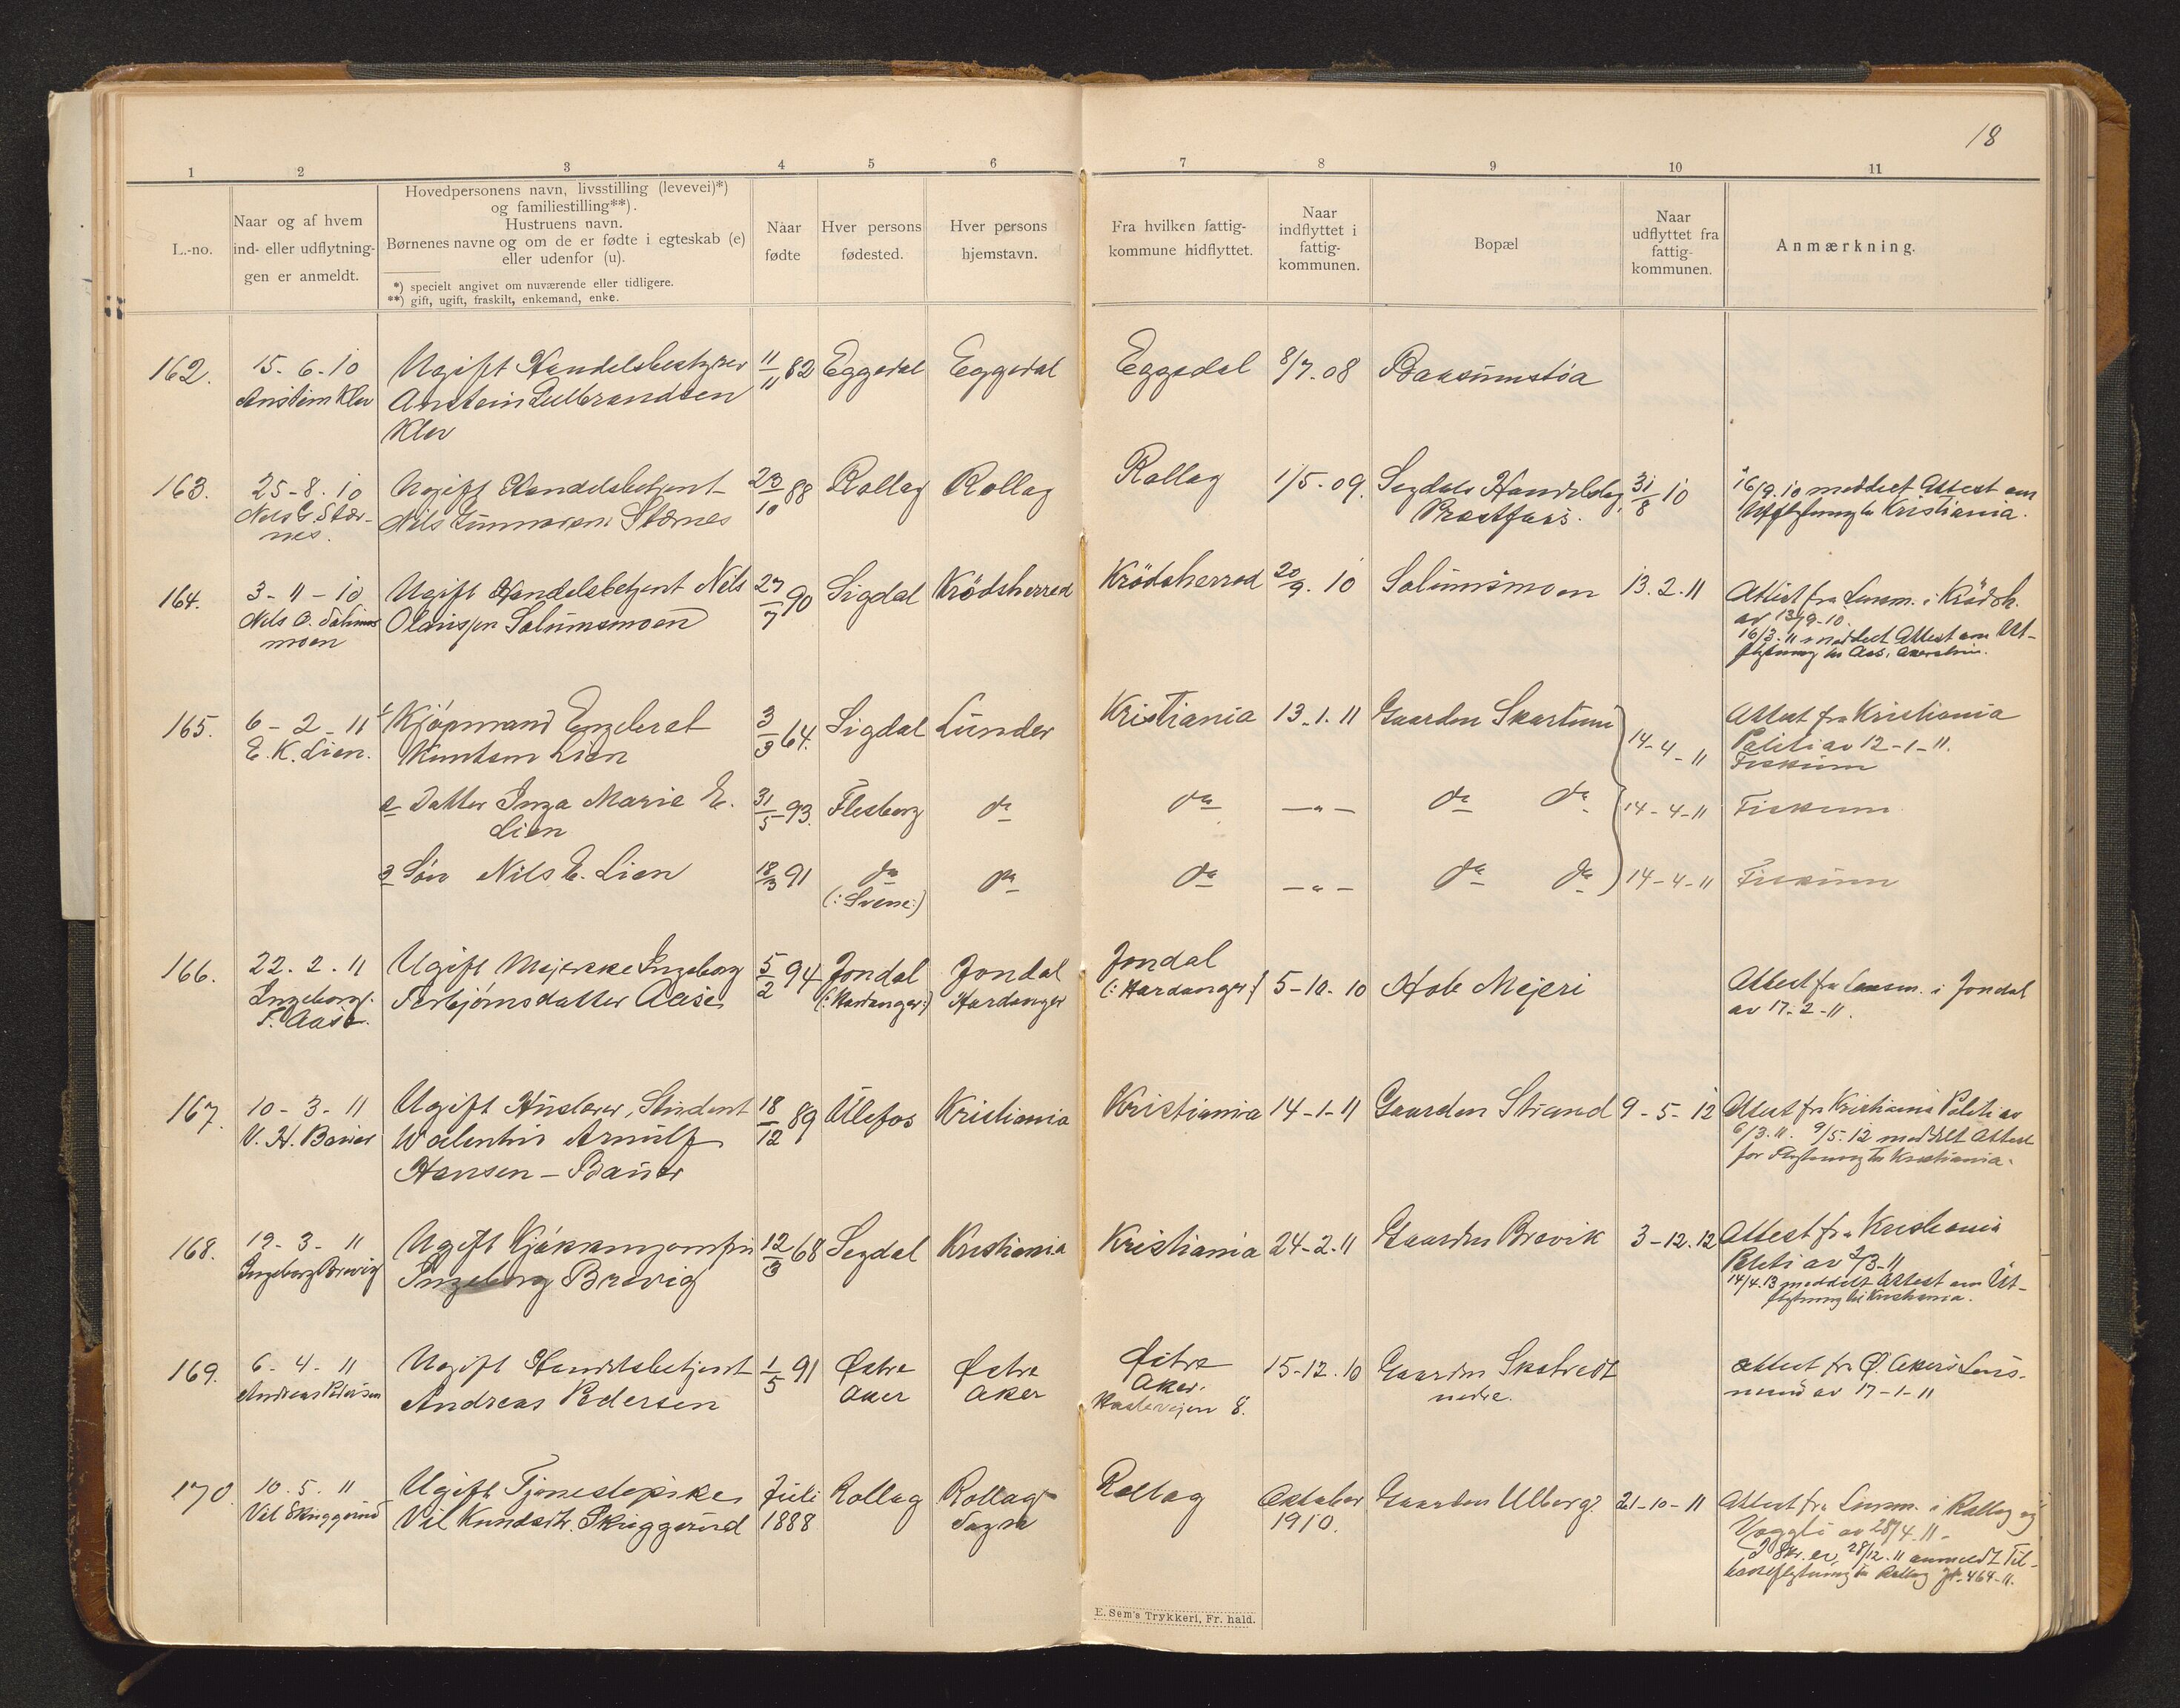 18
1 2 3 4 5 6 7 8 9 10 11
L.-no.
Naar og af hvem
ind- eller udflytnin-
gen er anmeldt.
Hovedpersonens navn, livsstilling (levevei)*)
og familiestilling**).
Hustruens navn.
Børnenes navne og om de er fødte i egteskab (e)
eller udenfor (u).
*) specielt angivet om nuværende eller tidligere.
**) gift, ugift, fraskilt, enkemand, enke.
Naar
fødte
Hver persons
fødested.
Hver persons
hjemstavn.
Fra hvilken fattig-
kommune hidflyttet.
Naar
indflyttet i
fattig-
kommunen.
Bopæl
Naar
udflyttet fra
fattig-
kommunen.
Anmærkning.
162.
15-6-10
Anstein Klev
Ugift Handelsbestyrer
Anstein Gulbrandsen
Klev
11/11 82
Eggedal
Eggedal
Eggedal
8/7.08
163.
25-8.10
Nils G. Stær-
nes.
Ugift Handelsbetjent
Nils Gunnarsen Stærnes
23/10 88
Rollag
Rollag
Rollag
1/5-09.
Segdals Handelslag,
Præstfoss.
31/8 10
16/9.10 meddelt Attest om
Utflytning til Kristiania.
164.
3-11-10
Nils O. Solums
moen
Ugift Handelsbetjent Nils
Olavssen Solumsmoen
27/7 90
Sigdal
Krödsherred
Krödsherred
20/9.10
Solumsmoen
13.2.11
Attest fra Lensm. i Krödsh.
av 13/9-10.
16/3.11 meddelt Attest om Ut-
flytning til Aas, Akershus.
165.
6-2-11
E. K. Lien.
Kjøpmand Engebret
Knutsen Lien
3/9 64.
Sigdal
Lunder
Kristiania
13.1.11
Gaarden Skartum
14-4-11
Attest fra Kristiania
Politi av 12-1-11.
Fiskum
e Datter Inga Marie E.
Lien
31/5 93.
Flesberg
do
do
-"-
do do
14-4-11
Fiskum
e Søn Nils E. Lien
18/3 91
do
(:Svene:)
do
do
-"-
do do
14-4-11
Fiskum
166.
22.2.11
Ingeborg
T. Aase.
Ugift Mejerske Ingeborg
Torbjörnsdatter Aase
5/2 94
Jondal
(:Hardanger:)
Jondal
Hardanger
Jondal
(:Hardanger:)
5-10-10
Hole Mejeri
Attest fra Lensm. i Jondal
av 17-2-11.
167.
10-3-11
V. H. Bauer
Ugift Huslærer, Student
Walentin Arnulf
Hansen-Bauer
18/12 89
Ulefos
Kristiania
Kristiania
14-1-11
Gaarden Strand
9-5-12
Attest fra Kristiania Politi av
6/3.11. 9/5.12 meddelt Attest
for Flytning til Kristiania.
168.
19-3-11
Ingeborg Brevig
Ugift Kjøkkenjomfru
Ingeborg Brevig
12/3 68
Segdal
Kristiania
Kristiania
24-2-11
Gaarden Brevik
3-12.12
Attest fra Kristiania
Politi av 2/3-11
14/4.13 meddelt Attest om Ut-
flytning til Kristiania.
169.
6-4-11
Andreas Pedersen
Ugift Handelsbetjent
Andreas Pedersen
1/5 91
Østre
Aker
Østre
Aker
Østre
Aker.
8.
15-12.10
Gaarden Skatvedt
nedre.
Attest fra Ø. Akers Lens-
mand av 17-1-11
170.
10.5.11
Vil Skuggerud
Ugift Tjenestepike
Vil Knudsdtr. Skuggerud
Juli
1888
Rollag
Rollag
Sogn
Rollag
Oktober
1910.
Gaarden Ulberg.
21-10-11
Attest fra Lensm. i Rollag og
Veggli av 28/4.11-
28/12.11 anmeldt Til-
bakeflytning til Rollag Jr. 464-11.
E. Sem's Trykkeri, Fr. hald.